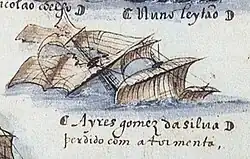 colao coelho D C Nuno leytão D
C Ayres gomez da silua D
perdido com a tormenta,